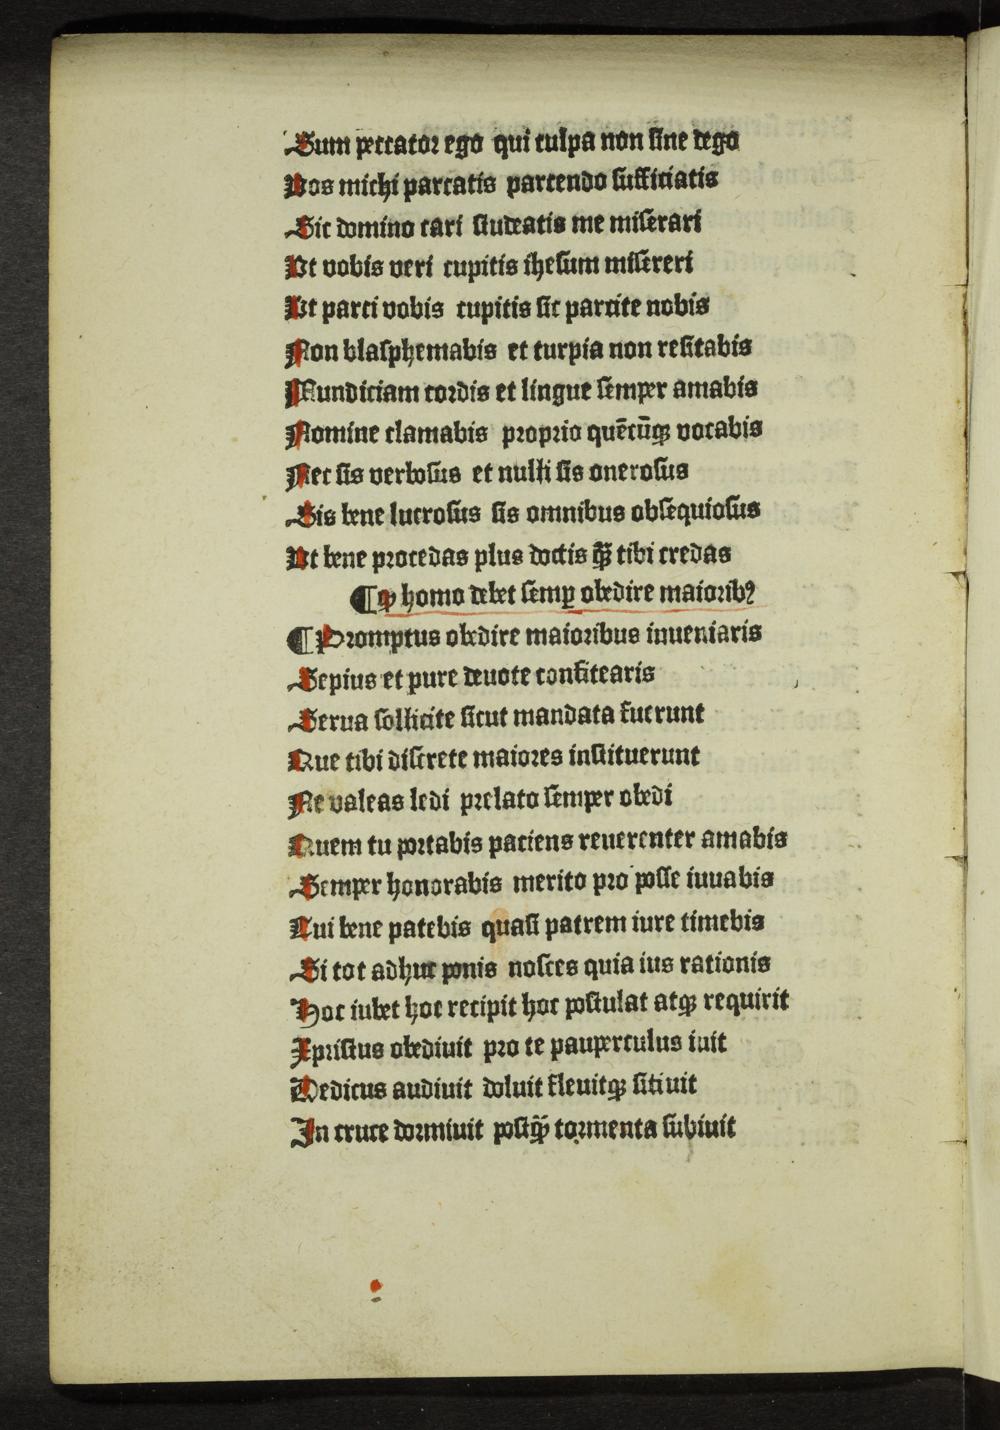 Sum peccator ego qui culpa non sine dego
Vos michi parcatis parcendo sufficiatis
Sic domino cari studeatis me miserari
Vt vobis veri cupitis ihesum misereri
Vt parci vobis cupitis sic parcite nobis
Non blasphemabis et turpia non resitabis
Mundiciam cordis et lingue semper amabis
Nomine clamabis proprio quēcūqꝫ vocabis
Nec sis verbosus et nulli sis onerosus
Sis bene lucrosus sis omnibus obsequiosus
Vt bene procedas plus doctis qᷓꝫ tibi credas
¶ ꝙ homo debet semꝑ obedire maioribꝰ
¶ Promptus obedire maioribus inueniaris
Sepius et pure deuote confitearis
Serua sollicite sicut mandata fuerunt
Que tibi discrete maiores instituerunt
Ne valeas ledi prelato semper obedi
Quem tu portabis paciens reuerenter amabis
Semper honorabis merito pro posse iuuabis
Cui bene patebis quasi patrem iure timebis
Si tot adhuc ponis nosces quia ius rationis
Hoc iubet hoc recipit hoc postulat atqꝫ requirit
Xpristus obediuit pro te pauperculus iuit
Medicus audiuit doluit fleuitqꝫ sitiuit
In cruce dormiuit postqᷓꝫ tormenta subiuit